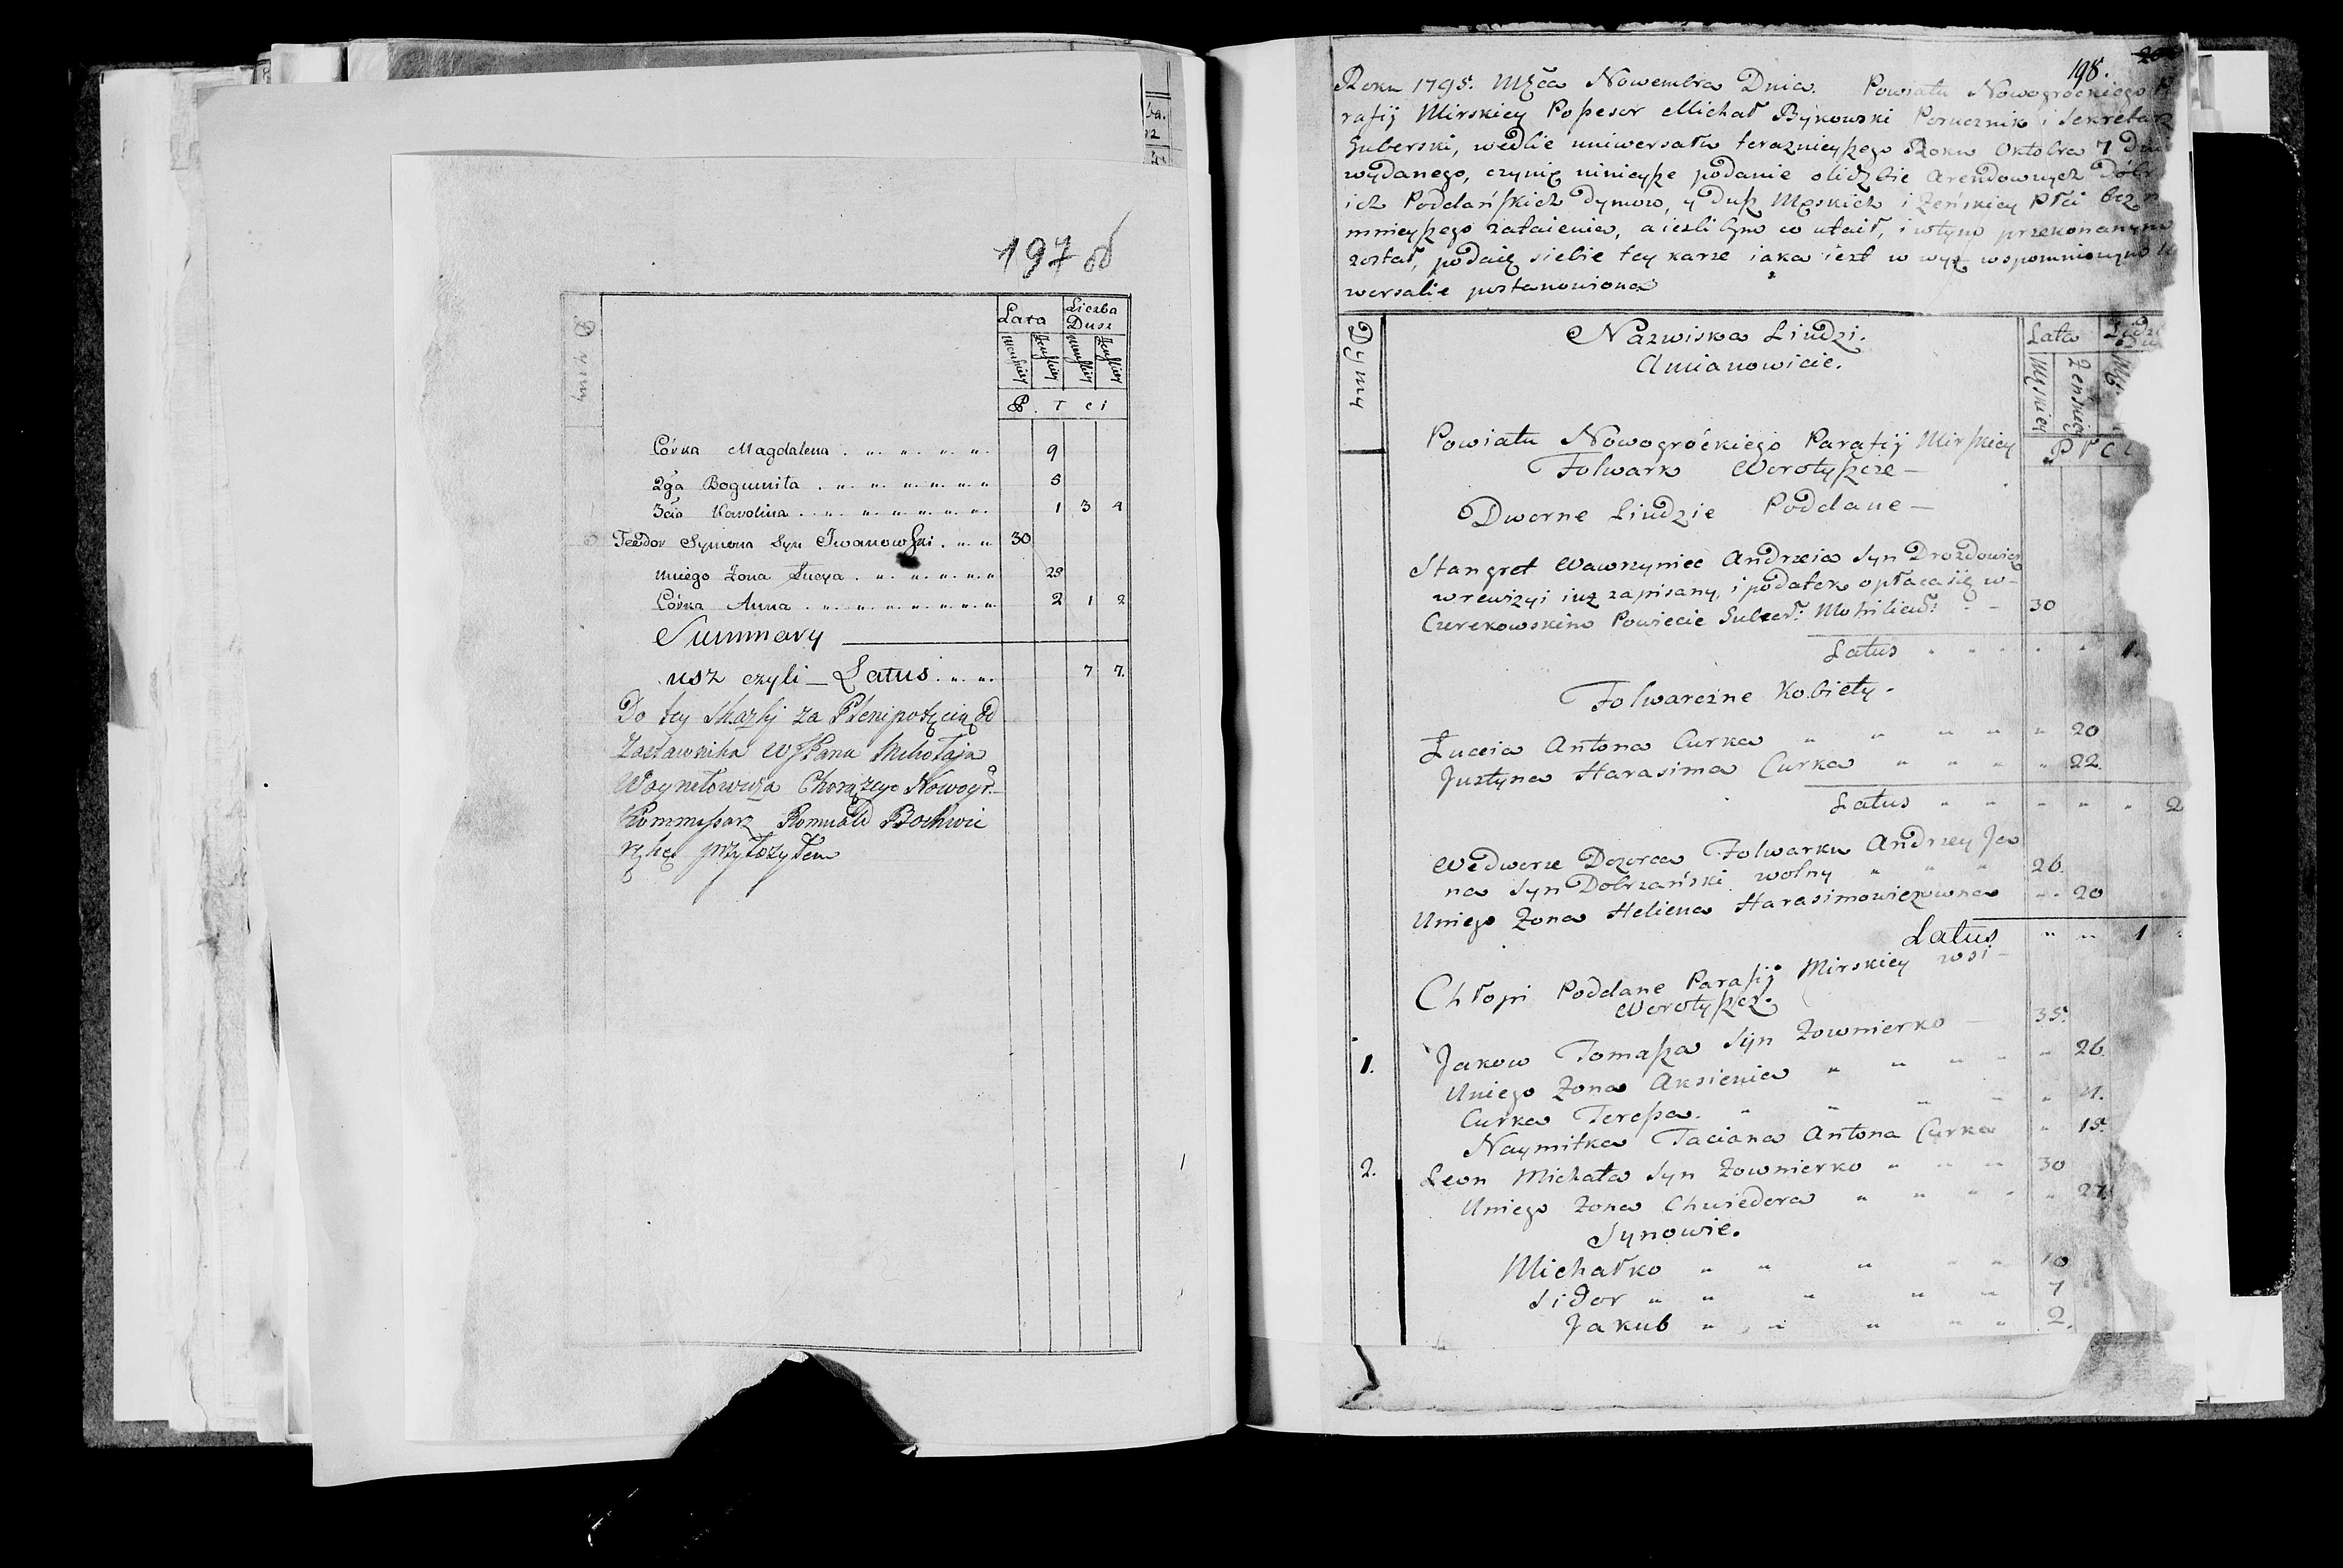 197 об
Dymy
Lata
Liczba Dusz
Męskiey
Żeńskiey
Męskiey
Żeńskiey
P. ł c i
Córka Magdalena 9
2ga Bogumiła 5
3cia Karolina 1 3 4
Teodor Symona Syn Iwanowski 30
uniego Żona Łucya 29
Córka Anna 2 1 2
Summary
usz czyli Latus 7 7.
Do tey Skazki za Plenipotęcią od
Zastawnika WJPana Mikołaja
Woynłowicza Chorążego Nowogr.
Kommissarz Romuald Bochwic
rękę przyłożyłem
198.
Roku 1795. Mżca Nowembra Dnia. Powiatu Nowogrockiego
rafij Mirskiey Possesor Michał Bykowski Porucznik i Sekretarz
Guberski, wedlie uniwersału terazniejszego Roku Oktobra 7
wydanego, czynię ninieysze podanie o lidzbie arendownych Dóbr
ich Poddańskich dymow, y Dusz Męskich i żeńskiey Płci bez
mnieyszego zataienia, a iezli bym co utaił, i wtym przekonanym
został, podaię siebie tey karze iaka iest w wyż wspomnionym
wersalie postanowiona
Dymy
Nazwiska Liudzi.
Amianowicie.
Lata
Męskiey
Żeńskiey
P ł c
Powiatu Nowogróckiego Parafij Mirskiey
Folwark Worotyszcze —
Dworne Liudzie Poddane —
Stangret Wawrzyniec Andrzeia Syn Drozdowicz
w rewizyi iuz zapisany, i podatek opłaca się w-
Czerekowskim Powiecie Guber: Mohilew: 30
Latus 1.
Folwarczne Kobiety.
Łuceia Antona Curka 20
Justyna Harasima Curka 22.
Latus 2
Wedworze Dozorca Folwarku Andrzey Ja
na Syn Dobrzański wolny 26.
Uniego Żona Heliena Harasimowiczowna 20
Latus 1
Chłopi Poddane Parafij Mirskiey wsi-
Worotyszcz.
1. Jakow Tomasza Syn Żownierko 35.
Uniego Żona Aksienia 26.
Curka Teressa. 4.
Naymitka Taciana Antona Curka 15.
2. Leon Michała Syn Żownierko 30
Uniego Żona Chwiedora 27.
Synowie.
Michałko 10
Sidor 7
Jakub 2.